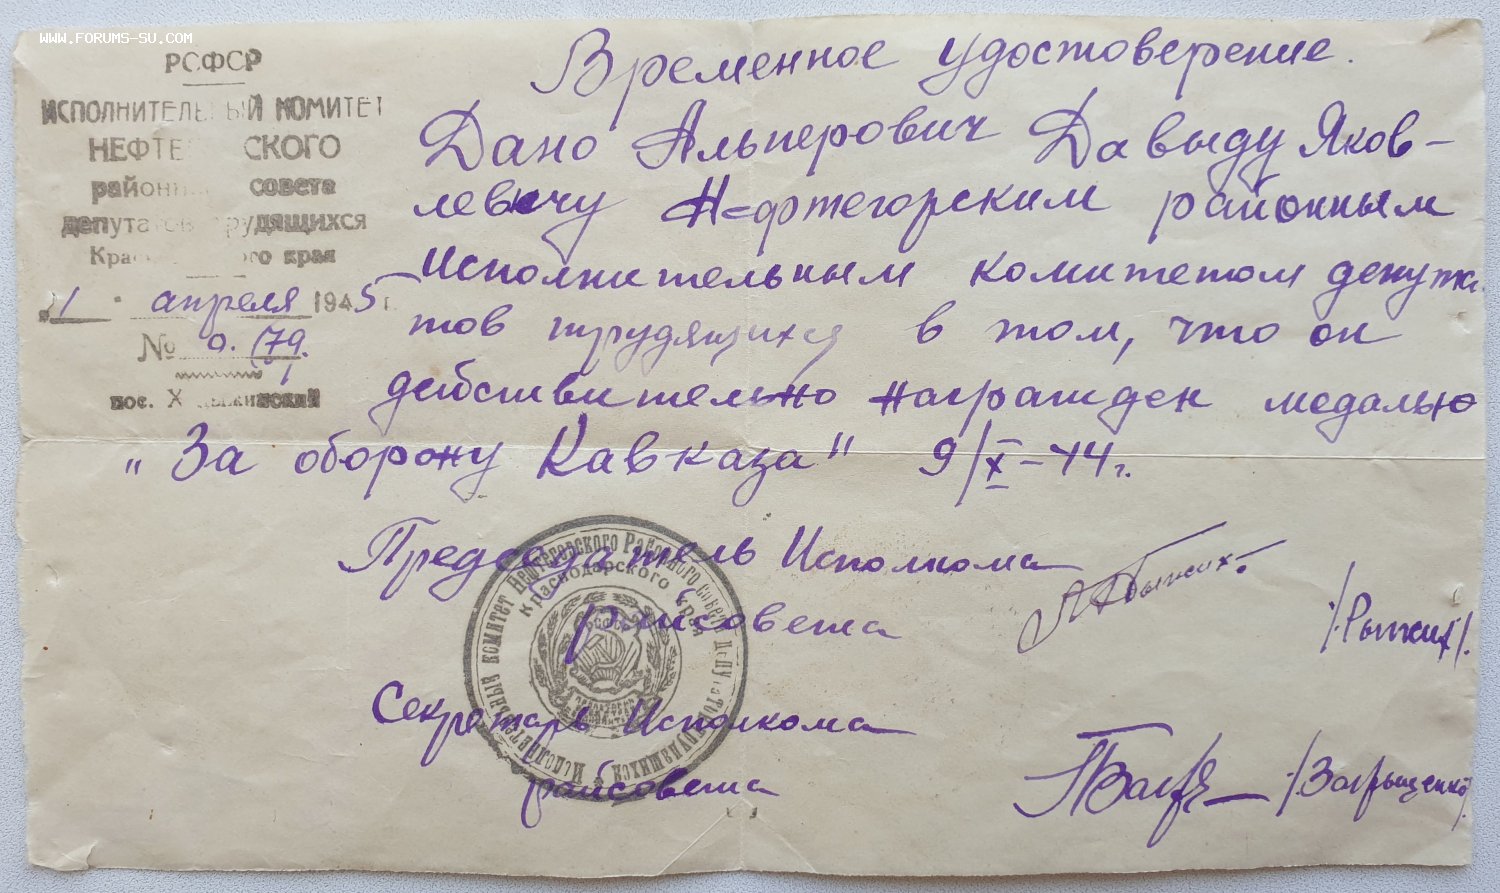 WWW.FORUMS-SU.COM
РСФСР
ИСПОЛНИТЕЛЬНЫЙ КОМИТЕТ
НЕФТЕ СКОГО
районн совета
депутатов трудящихся
Крас ого края
1 апреля 1945 г.
№ 0.179.
пос. Х ыжинский
Временное удостоверение.
Дано Альперович Давыду Яков-
левичу Нефтегорским районным
исполнительным комитетом депута
тов трудящихся в том, что он
действительно награжден медалью
"За оборону Кавказа" 9/X-44 г.
Председатель Исполкома
райсовета
/Рыжих/.
Секретарь Исполкома
райсовета
Исполнительный комитет Нефтегорского Районного совета Депутатов трудящихся
Краснодарского края